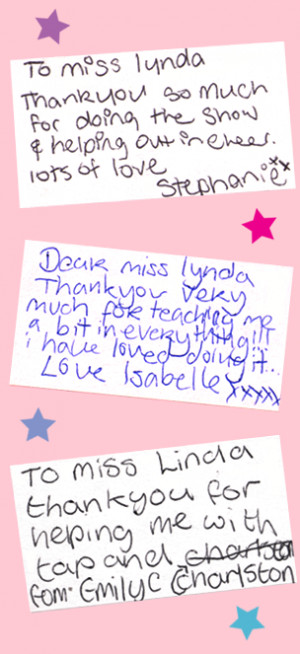 To miss lynda
Thankyou so much
for doing the show
& helping out in cheer.
lots of love
Stephanie xxx
Dear miss lynda
Thankyou very
much for teaching me
a bit in everything!!!
i have loved doing it..
Love Isabelle xxxxx
To miss Linda
thankyou for
heping me with
tap and
fom: EmilyC Charlston